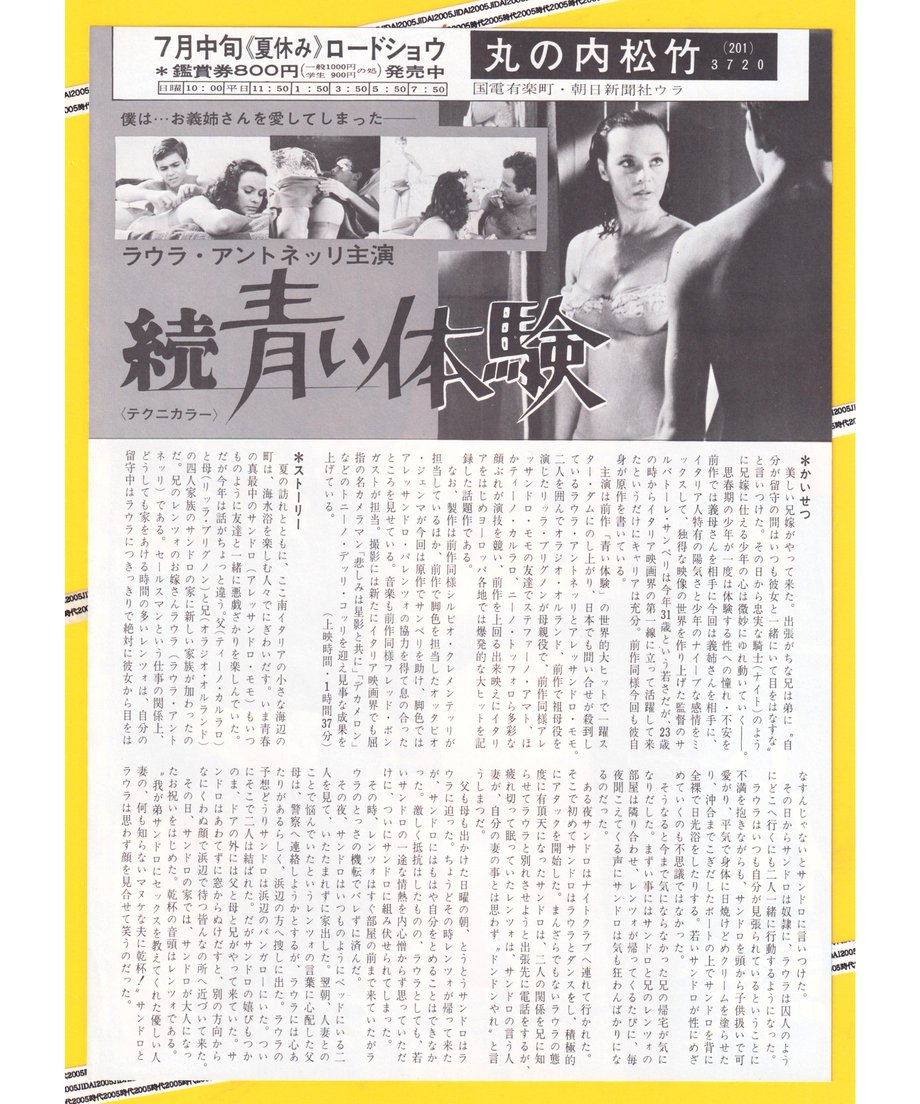 7月中旬《夏休み》ロードショウ
*鑑賞券800円(一般1000円 学生 900円の処)発売中
日曜 10:00 平日 11:50 1:50 3:50 5:50 7:50
丸の内松竹 (201) 3720
国電有楽町・朝日新聞社ウラ
僕は…お義姉さんを愛してしまった──
ラウラ・アントネッリ主演
続青い体験
〈テクニカラー〉
*かいせつ
美しい兄嫁がやって来た。出張がちな兄は弟に〝自
分が留守の間はいつも彼女と一緒にいて目をはなすな〟
と言いつけた。その日から忠実な騎士(ナイト)のよう
に兄嫁に仕える少年の心は微妙にゆれ動いていく──。
思春期の少年が一度は体験する性への憧れ・不安を
前作では義母さんを相手に今回は義姉さんを相手に、
イタリア人特有の陽気さと少年のナイーブな感情をミ
ックスして、独得な映像の世界を作り上げた監督のサ
ルバトーレ・サンペリは今年31歳という若さだが、23歳
の時からイタリア映画界の第一線に立って活躍して来
たというだけにキャリアは充分。前作同様今回も彼自
身が原作を書いている。
主演は前作「青い体験」の世界的大ヒットで一躍ス
ター・ダムにのし上がり、日本でも問い合せが殺到し
ているラウラ・アントネッリとアレッサンドロ・モモ。
二人を囲んでオラジオ・オルランド、前作で祖母役を
演じたリッラ・ブリグノンが母親役で、前作同様アレ
ッサンドロ・モモの友達でスティーノ・アマート、ほ
かティーノ・カルラロ、ニーノ・トッフォロら多彩な
顔ぶれが演技を競い、前作を上回る出来映えにイタリ
アをはじめヨーロッパ各地では爆発的な大ヒットを記
録した話題作である。
なお、製作は前作同様シルビオ・クレメンテッリが
担当しているほか、前作で脚色を担当したオッタビオ
・ジェンマが今回は原作でサンペリを助け、脚色では
アレッサンドロ・パレンツォの協力を得て息の合った
ところを見せている。音楽も前作同様フレッド・ボン
ガストが担当。撮影には新たにイタリア映画界でも屈
指の名カメラマン「悲しみは星影と共に」「デカメロン」
などのトニーノ・デッリ・コッリを迎え見事な成果を
上げている。
(上映時間・1時間37分)
*ストーリー
夏の訪れとともに、ここ南イタリアの小さな海辺の
町は、海水浴を楽しむ人々でにぎわいだす。いま青春
の真最中のサンドロ(アレッサンドロ・モモ)もいつ
ものように友達と一緒に悪戯ざかりを楽しんでいた。
だが今年は話がちょっと違う。父(ティーノ・カルラロ)
と母(リッラ・ブリグノン)と兄(オラジオ・オルランド)
の四人家族のサンドロの家に新しい家族が加わったの
だ。兄のレンツォのお嫁さんラウラ(ラウラ・アント
ネッリ)である。セールスマンという仕事の関係上、
どうしても家をあける時間の多いレンツォは、自分の
留守中はラウラにつきっきりで絶対に彼女から目をは
なすんじゃないとサンドロに言いつけた。
その日からサンドロは奴隷に、ラウラは囚人のよう
にどこへ行くにも二人一緒に行動するようになった。
ラウラはいつも自分が見張られているということに
不満を抱きながらも、サンドロを頭から子供扱いで可
愛がり、平気で身体に日焼けどめクリームを塗らせた
り、沖合までこぎだしたボートの上でサンドロを背に
全裸で日光浴をしたりする。若いサンドロが性にめざ
めていくのも不思議ではなかった。
そうなると今まで気にならなかった兄の帰宅が気に
なりだした。まずい事にはサンドロと兄のレンツォの
部屋は隣り合わせ、レンツォが帰ってくるたびに、毎
夜聞こえてくる声にサンドロは気も狂わんばかりにな
るのだった。
ある夜サンドロはナイトクラブへ連れて行かれた。
そこで初めてサンドロはラウラとダンスをし、積極的
にアタックを開始した。まんざらでもないラウラの態
度に有頂天になったサンドロは、二人の関係を兄に知
らせてラウラと別れさせようと出張先に電話をするが、
疲れ切って眠っていたレンツォは、サンドロの言う人
妻が、自分の妻の事とは思わず〝ドンドンやれ〟と言
うしまつだ。
父も母も出かけた日曜の朝、とうとうサンドロはラ
ウラに迫った。ちょうどその時レンツォが帰って来た
が、サンドロにはもはや自分をとめることはできなか
った。激しく抵抗はしたものの、ラウラとしても、若
いサンドロの一途な情熱を内心憎からず思っていただ
けに、ついにサンドロに組み伏せられてしまった。
その時、レンツォはすぐ部屋の前まで来ていたがラ
ウラのとっさの機転でバレずに済んだ。
その夜、サンドロはいつものようにベッドにいる二
人を見て、いたたまれずに家出した。翌朝、人妻との
ことで悩んでいたというレンツォの言葉に心配した父
母は、警察へ連絡しようかとするが、ラウラには心あ
たりがあるらしく、浜辺の方へ捜しに出た。ラウラの
予想どうりサンドロは浜辺のバンガローにいた。つい
にそこで二人は結ばれた。だがサンドロの嬉びもつか
のま、ドアの外には父と母と兄がやって来ていた。サ
ンドロはあわてずに窓からぬけだすと、別の方向から
なにくわぬ顔で浜辺で待つ皆んなの所へ近づいて来た。
その日、サンドロの家では、サンドロが大人になっ
たお祝いをはじめた。乾杯の音頭はレンツォである。
〝我が弟サンドロにセックスを教えてくれた優しい人
妻の、何も知らないマヌケな夫に乾杯！〟サンドロと
ラウラは思わず顔を見合せて笑うのだった。
JIDAI2005時代